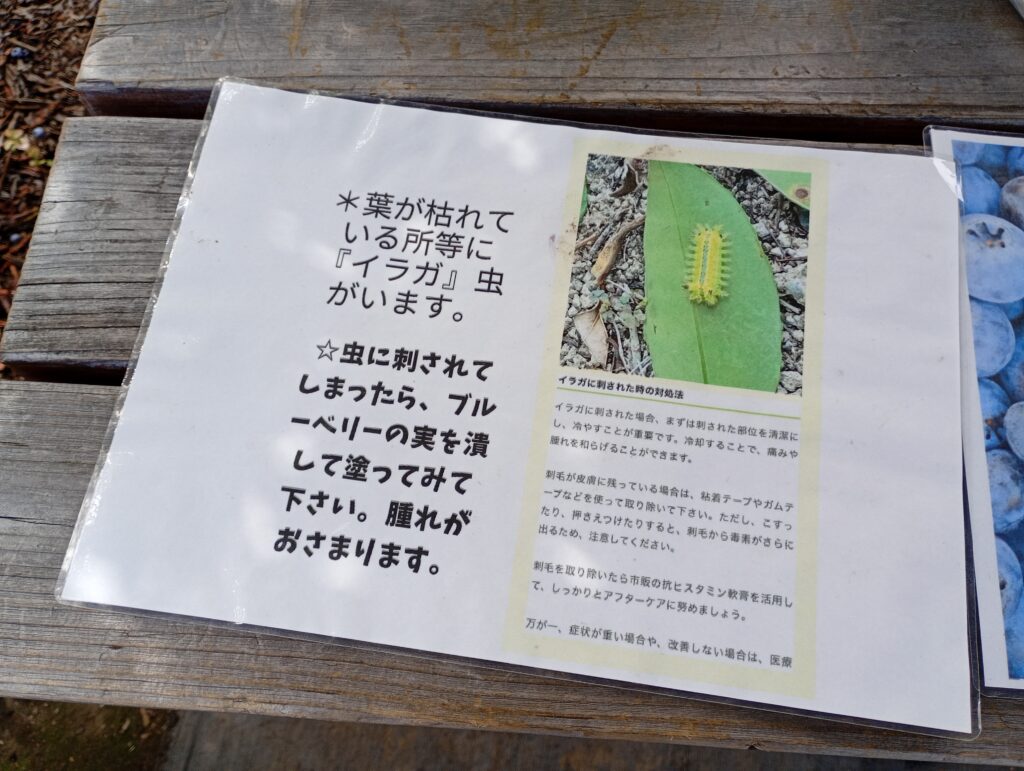 ＊葉が枯れて
いる所等に
『イラガ』虫
がいます。
☆虫に刺されて
しまったら、ブル
ーベリーの実を潰
して塗ってみて
下さい。腫れが
おさまります。
イラガに刺された時の対処法
イラガに刺された場合、まずは刺された部位を清潔に
し、冷やすことが重要です。冷却することで、痛みや
腫れを和らげることができます。
刺毛が皮膚に残っている場合は、粘着テープやガムテ
ープなどを使って取り除いて下さい。ただし、こすっ
たり、押さえつけたりすると、刺毛から毒素がさらに
出るため、注意してください。
刺毛を取り除いたら市販の抗ヒスタミン軟膏を活用し
て、しっかりとアフターケアに努めましょう。
万が一、症状が重い場合や、改善しない場合は、医療